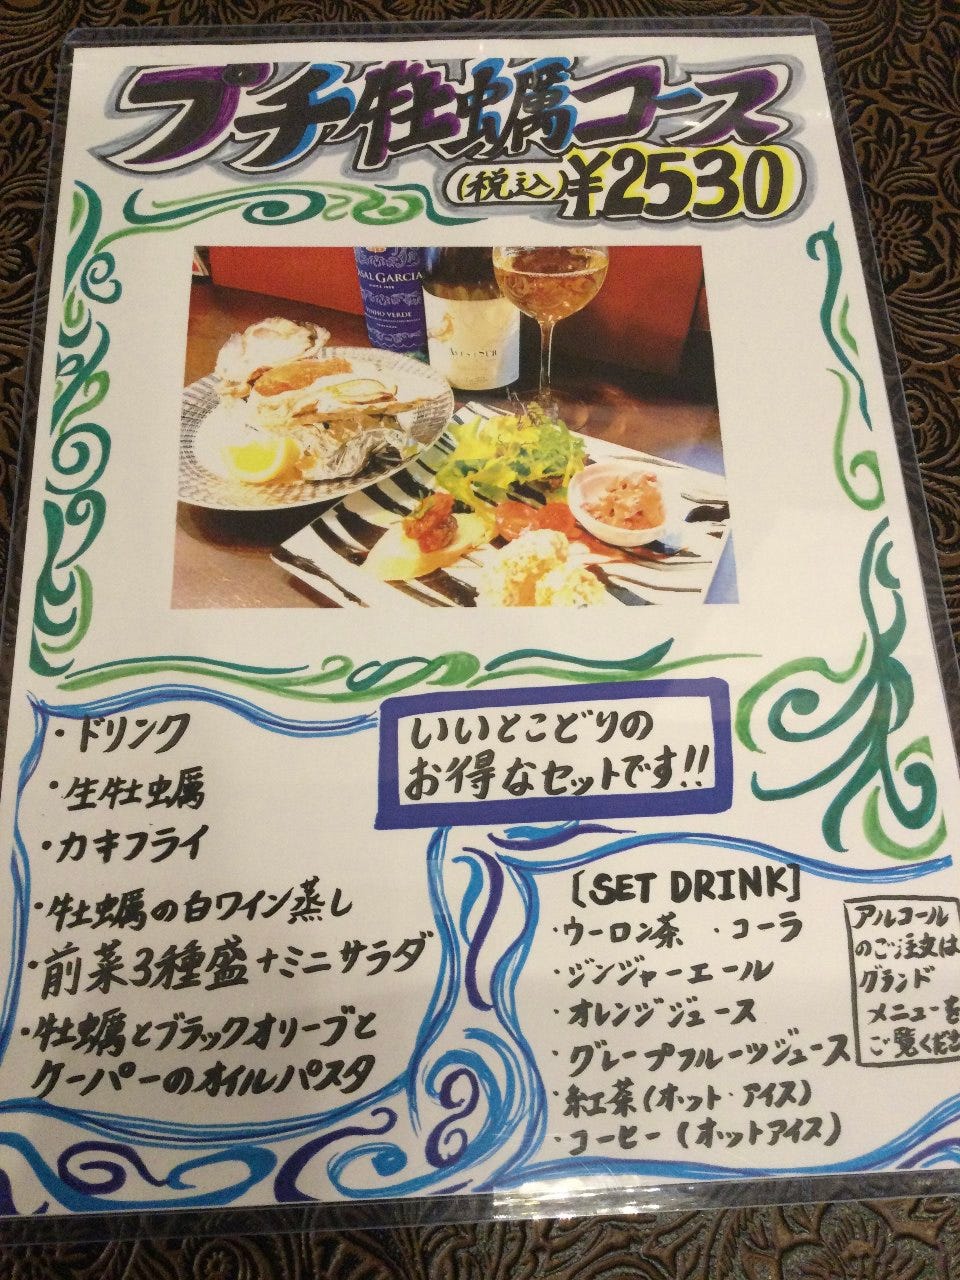 プチ牡蠣コース
(税込)¥2530
CASAL GARCIA
VINHO VERDE
いいとこどりの
お得なセットです!!
・ドリンク
・生牡蠣
・カキフライ
・牡蠣の白ワイン蒸し
・前菜3種盛+ミニサラダ
・牡蠣とブラックオリーブと
ケーパーのオイルパスタ
[SET DRINK]
・ウーロン茶 ・コーラ
・ジンジャーエール
・オレンジジュース
・グレープフルーツジュース
・紅茶(ホット・アイス)
・コーヒー(ホットアイス)
アルコール
のご注文は
グランド
メニューを
ご覧くださ